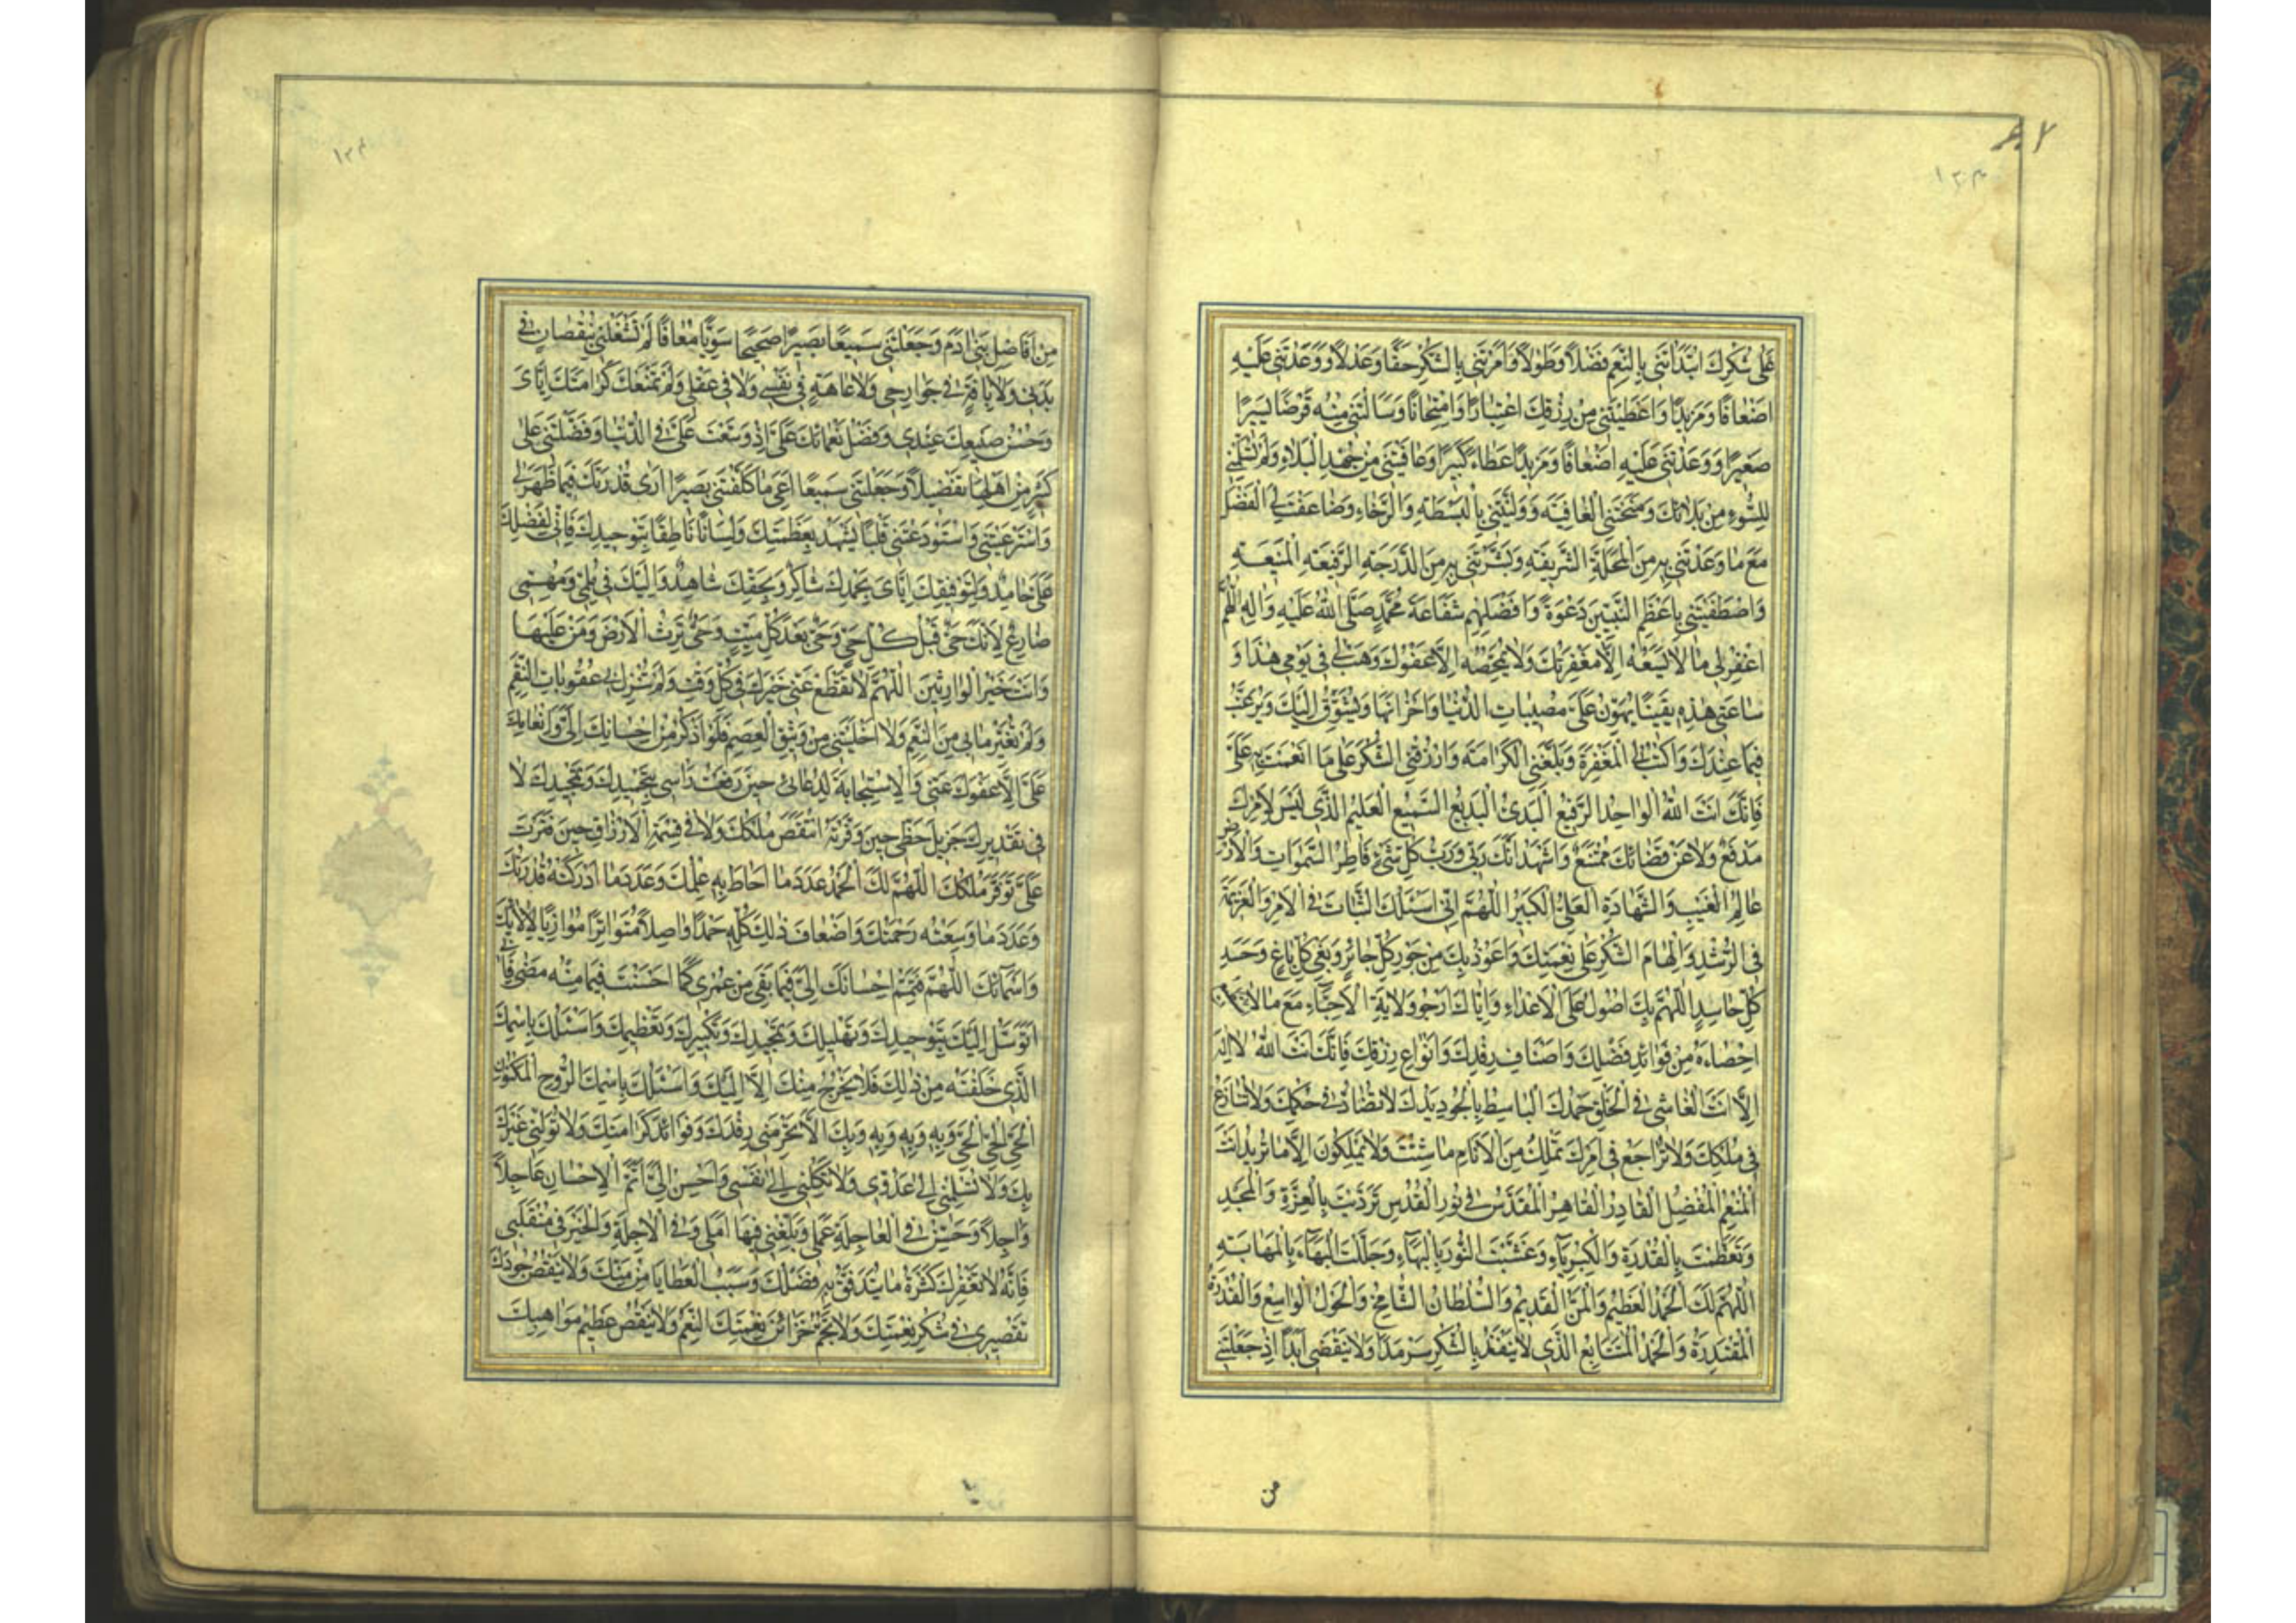 ١٢٣
عَلى شُكْرِكَ ابْتَدَأتَني بِالنِّعَمِ فَضْلاً وَطَوْلاً وَاَمَرْتَني بِالشُّكْرِ حَقّاً وَعَدْلاً وَوَعَدْتَني عَلَيْهِ
اَضْعافاً وَمَزيداً وَاَعْطَيْتَني مِنْ رِزْقِكَ اعْتِباراً وَامْتِحاناً وَسَاَلْتَني مِنْهُ قَرْضاً يَسيراً
صَغيراً وَوَعَدْتَني عَلَيْهِ اَضْعافاً وَمَزيداً عَطاءً كَثيراً وَعافَيْتَني مِنْ جُهْدِ الْبَلاءِ وَلَمْ تُسْلِمْني
لِلسُّوءِ مِنْ بَلائِكَ وَمَنَحْتَنِي الْعافِيَةَ وَوَلَّيْتَني بِالْبَسْطَةِ وَالرَّخاءِ وَضاعَفْتَ لِيَ الْفَضْلَ
مَعَ ما وَعَدْتَني بِهِ مِنَ الْمَحَلَّةِ الشَّريفَةِ وَبَشَّرْتَني بِهِ مِنَ الدَّرَجَةِ الرَّفيعَةِ الْمَنيعَةِ
وَاصْطَفَيْتَني بِاَعْظَمِ النَّبِيّينَ دَعْوَةً وَاَفْضَلِهِمْ شَفاعَةً مُحَمَّدٍ صَلَّى اللهُ عَلَيْهِ وَالِهِ اللّهُمَّ
اغْفِرْ لي ما لا يَسَعُهُ اِلاّ مَغْفِرَتُكَ وَلا يُمَحِّصُهُ اِلاّ عَفْوُكَ وَهَبْ لي في يَوْمي هذا وَ
ساعَتي هذِهِ يَقيناً يُهَوِّنُ عَلَيَّ مُصيباتِ الدُّنْيا وَاَحْزانَها وَيُشَوِّقُ اِلَيْكَ وَيُرَغِّبُ
فيما عِنْدَكَ وَاكْتُبْ لِيَ الْمَغْفِرَةَ وَبَلِّغْنِي الْكَرامَةَ وَارْزُقْنِي الشُّكْرَ عَلى ما اَنْعَمْتَ بِهِ عَلَيَّ
فَاِنَّكَ اَنْتَ اللهُ الْواحِدُ الرَّفيعُ الْبَدِيُ الْبَديعُ السَّميعُ الْعَليمُ الَّذي لَيْسَ لاَمْرِكَ
مَدْفَعٌ وَلا عَنْ قَضائِكَ مُمْتَنَعٌ وَاَشْهَدُ اَنَّكَ رَبّي وَرَبُّ كُلِّ شَيْءٍ فاطِرُ السَّمواتِ وَالاَرْضِ
عالِمُ الْغَيْبِ وَالشَّهادَةِ الْعَلِيُّ الْكَبيرُ اللّهُمَّ اِنّي اَسْئَلُكَ الثَّباتَ فِي الاَمْرِ وَالْعَزيمَةَ
فِي الرُّشْدِ وَاِلْهامَ الشُّكْرِ عَلى نِعْمَتِكَ وَاَعُوذُ بِكَ مِنْ جَوْرِ كُلِّ جائِرٍ وَبَغْيِ كُلِّ باغٍ وَحَسَدِ
كُلِّ حاسِدٍ اللّهُمَّ بِكَ اَصُولُ عَلَى الاَعْداءِ وَاِيّاكَ اَرْجُو وَلايَةَ الاَحِبّاءِ مَعَ ما لا
اِحْصاءَهُ مِنْ فَوائِدِ فَضْلِكَ وَاَصْنافِ رِفْدِكَ وَاَنْواعِ رِزْقِكَ فَاِنَّكَ اَنْتَ اللهُ لا اِلهَ
اِلاّ اَنْتَ الْفاشي فِي الْخَلْقِ حَمْدُكَ الْباسِطُ بِالْجُودِ يَدُكَ لا تُضادُّ في حُكْمِكَ وَلا تُنازَعُ
في مُلْكِكَ وَلا تُراجَعُ في اَمْرِكَ تَمْلِكُ مِنَ الاَنامِ ما شِئْتَ وَلا يَمْلِكُونَ اِلاّ ما تُريدُ اَنْتَ
الْمُنْعِمُ الْمُفْضِلُ الْقادِرُ الْقاهِرُ الْمُقَدَّسُ في نُورِ الْقُدْسِ تَرَدَّيْتَ بِالْعِزَّةِ وَالْمَجْدِ
وَتَعَظَّمْتَ بِالْقُدْرَةِ وَالْكِبْرِياءِ وَغَشَّيْتَ النُّورَ بِالْبَهاءِ وَجَلَّلْتَ الْبَهاءَ بِالْمَهابَةِ
اللّهُمَّ لَكَ الْحَمْدُ الْعَظيمُ وَالْمَنُّ الْقَديمُ وَالسُّلْطانُ الشّامِخُ وَالْحَوْلُ الْواسِعُ وَالْقُدْرَةُ
الْمُقْتَدِرَةُ وَالْحَمْدُ الْمُتَتابِعُ الَّذي لا يَنْفَدُ بِالشُّكْرِ سَرْمَداً وَلا يَنْقَضي اَبَداً اِذْ جَعَلْتَني
من
١٢٤
مِنْ اَفاضِلِ بَني ادَمَ وَجَعَلْتَني سَميعاً بَصيراً صَحيحاً سَوِيّاً مُعافاً لَمْ تَشْغَلْني بِنُقْصانٍ في
بَدَني وَلا بِافَةٍ في جَوارِحي وَلا عاهَةٍ في نَفْسي وَلا في عَقْلي وَلَمْ تَمْنَعْكَ كَرامَتُكَ اِيّايَ
وَحُسْنُ صَنيعِكَ عِنْدي وَفَضْلُ نَعْمائِكَ عَلَيَّ اِذْ وَسَّعْتَ عَلَيَّ فِي الدُّنْيا وَفَضَّلْتَني عَلى
كَثيرٍ مِنْ اَهْلِها تَفْضيلاً وَجَعَلْتَني سَميعاً اَعي ما كَلَّفْتَني بَصيراً اَرى قُدْرَتَكَ فيما ظَهَرَ لي
وَاسْتَرْعَيْتَني وَاسْتَوْدَعْتَني قَلْباً يَشْهَدُ بِعَظَمَتِكَ وَلِساناً ناطِقاً بِتَوْحيدِكَ فَاِنّي لِفَضْلِكَ
عَلَيَّ حامِدٌ وَلِتَوْفيقِكَ اِيّايَ بِحَمْدِكَ شاكِرٌ وَبِحَقِّكَ شاهِدٌ وَاِلَيْكَ في مُلِمّي وَمُهِمّي
ضارِعٌ لاَنَّكَ حَيٌّ قَبْلَ كُلِّ حَيٍّ وَحَيٌّ بَعْدَ كُلِّ مَيِّتٍ وَحَيٌّ تَرِثُ الاَرْضَ وَمَنْ عَلَيْها
وَاَنْتَ خَيْرُ الْوارِثينَ اللّهُمَّ لا تَقْطَعْ عَنّي خَيْرَكَ في كُلِّ وَقْتٍ وَلَمْ تُنْزِلْ بي عُقُوباتِ النِّقَمِ
وَلَمْ تُغَيِّرْ ما بي مِنَ النِّعَمِ وَلا اَخْلَيْتَني مِنْ وَثيقِ الْعِصَمِ فَلَوْ اَذْكُرْ مِنْ اِحْسانِكَ اِلَيَّ وَاِنْعامِكَ
عَلَيَّ اِلاّ عَفْوَكَ عَنّي وَالاِسْتِجابَةَ لِدُعائي حينَ رَفَعْتُ رَاْسي بِتَحْميدِكَ وَتَمْجيدِكَ لا
في تَقْديرِكَ جَزيلَ حَظّي حينَ وَفَّرْتَهُ انْتَقَصَ مُلْكُكَ وَلا في قِسْمَةِ الاَرْزاقِ حينَ قَتَّرْتَ
عَلَيَّ تَوَفَّرَ مُلْكُكَ اللّهُمَّ لَكَ الْحَمْدُ عَدَدَ ما اَحاطَ بِهِ عِلْمُكَ وَعَدَدَ ما اَدْرَكَتْهُ قُدْرَتُكَ
وَعَدَدَ ما وَسِعَتْهُ رَحْمَتُكَ وَاَضْعافَ ذلِكَ كُلِّهِ حَمْداً واصِلاً مُتَواتِراً مُوازِياً لالائِكَ
وَاَسْمائِكَ اللّهُمَّ فَتَمِّمْ اِحْسانَكَ اِلَيَّ فيما بَقِيَ مِنْ عُمْري كَما اَحْسَنْتَ فيما مِنْهُ مَضى فَاِنّي
اَتَوَسَّلُ اِلَيْكَ بِتَوْحيدِكَ وَتَهْليلِكَ وَتَمْجيدِكَ وَتَكْبيرِكَ وَتَعْظيمِكَ وَاَسْئَلُكَ بِاسْمِكَ
الَّذي خَلَقْتَهُ مِنْ ذلِكَ فَلا يَخْرُجُ مِنْكَ اِلاّ اِلَيْكَ وَاَسْئَلُكَ بِاسْمِكَ الرُّوحِ الْمَكْنُونِ
الْحَيِّ الْحَيِّ الْحَيِّ وَبِهِ وَبِهِ وَبِهِ وَبِكَ اَلاّ تَحْرِمَني رِفْدَكَ وَفَوائِدَ كَرامَتِكَ وَلا تُوَلِّني غَيْرَكَ
بِكَ وَلا تُسْلِمْني اِلى عَدُوّي وَلا تَكِلْني اِلى نَفْسي وَاَحْسِنْ اِلَيَّ اَتَمَّ الاِحْسانِ عاجِلاً
وَاجِلاً وَحَسِّنْ فِي الْعاجِلَةِ عَمَلي وَبَلِّغْني فيها اَمَلي وَفِي الاجِلَةِ وَالْخَيْرَ في مُنْقَلَبي
فَاِنَّهُ لا تُفْقِرُكَ كَثْرَةُ ما يَتَدَفَّقُ بِهِ فَضْلُكَ وَسَيْبُ الْعَطايا مِنْ مَنِّكَ وَلا يَنْقُصُ جُودَكَ
تَقْصيري في شُكْرِ نِعْمَتِكَ وَلا تُجِمُّ خَزائِنَ نِعْمَتِكَ النِّعَمُ وَلا يَنْقُصُ عَظيمَ مَواهِبِكَ